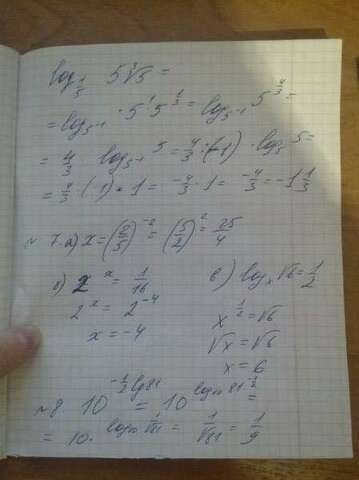 log_{1/5} 5∛5 =
= log_{5^{-1}} · 5^1 5^{1/3} = log_{5^{-1}} 5^{4/3} =
= 4/3 log_{5^{-1}} 5 = 4/3 · (-1) · log_5 5 =
= 4/3 (-1) · 1 = -4/3 · 1 = -4/3 = -1 1/3
№ 7. а) x = (2/5)^{-2} = (5/2)^2 = 25/4
б) 2^x = 1/16
2^x = 2^{-4}
x = -4
в) log_x √6 = 1/2
x^{1/2} = √6
√x = √6
x = 6
№8 10^{-1/2 lg 81} = 10^{log_{10} 81^{-1/2}} =
= 10^{log_{10} 1/√81} = 1/√81 = 1/9